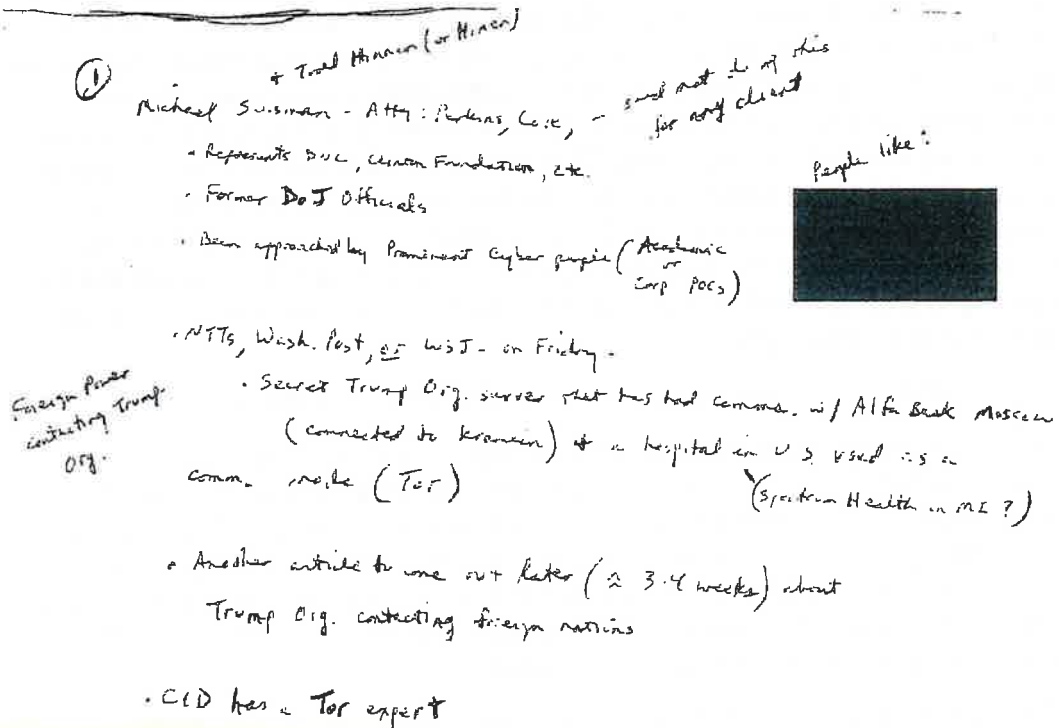 ①
+ Todd Hinnen (or Hinen)
Michael Sussman - Atty: Perkins, Coie, - said not do of this
for any client
• Represents DNC, Clinton Foundation, etc.
People like:
• Former DoJ Officials
• Been approached by Prominent Cyber people (Academic
or
Corp POCs)
• NYTs, Wash. Post, or WSJ - on Friday -
• Secret Trump Org. server that has had comms. w/ Alfa Bank Moscow
Foreign Power
contacting Trump
Org.
(connected to Kremlin) + a hospital in U S used as a
comm. node (Tor)
(Spectrum Health in MI ?)
• Another article to come out later (≈ 3-4 weeks) about
Trump Org. contacting foreign nations
• CID has a Tor expert